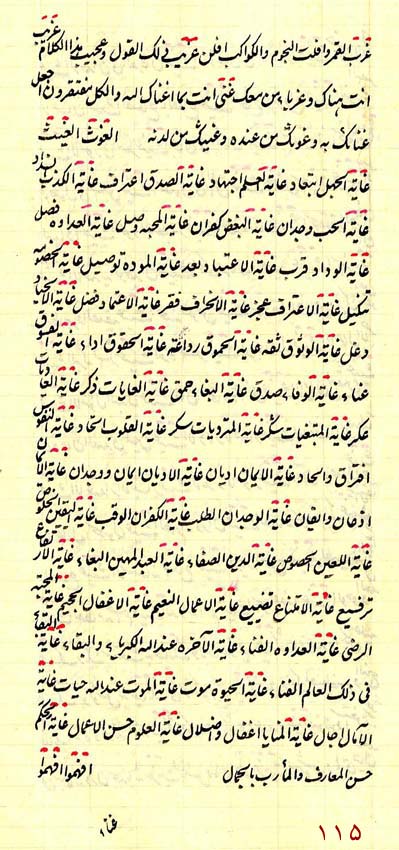 غرب القمر وافلت النجوم والكواكب افلن عربت فى ذلك القول وعجيب هذا الكلام غريب
انت هناك وغربا من معك غنى انت بما اغناك الله والكل مفتقرون اجعل
غناك به وغوثك من عنده وغيبك من لدنه الغوث الغيث
غاية الجهل ابتعاد غاية العلم اجتهاد غاية الصدق اعتراف غاية الكذب
غاية الحب وجدان غاية البغض كفران غاية المحبه وصل غاية العداوه فصل
غاية الوداد قرب غاية الاعتياد بعد غاية الموده توصيل غاية الخصومه
تنكيل غاية الاعتراف عجز غاية الانحراف فقر غاية الاعتماد فضل غاية
دغل غاية الوثوق ثقه غاية الحموق رداعة غاية الحقوق اداء غاية
عناء غاية الوفاء صدق غاية البغاء حمق غاية الغايات ذكر غاية
عكر غاية المبتغيات شكر غاية المترديات سكر غاية القلوب اتحاد غاية النفوس
افتراق والحاد غاية الايمان اديان غاية الاديان ايمان ووجدان غاية
اذعان وايقان غاية الوجدان الطلب غاية الكفران الوقب غاية اليقين الخلوص
غاية اللعين الخصوص غاية الدين الصفاء غاية العبد المهين البغاء غاية
ترفيع غاية الامتناع تضييع غاية الاعمال النعيم غاية الاغفال الجحيم غاية المحبه
الرضى غاية العداوه الفناء غاية الآخره عند الله الكبرياء والبقاء غاية البقاء
فى ذلك العالم الفناء غاية الحيوة موت غاية الموت عند الله حيات غاية
الآمال اجال غاية المنايا اغفال واضلال غاية العلوم حسن الاعمال غاية الحكم
حسن المعارف والمأرب بالجمال افهموا افهموا
١١٥